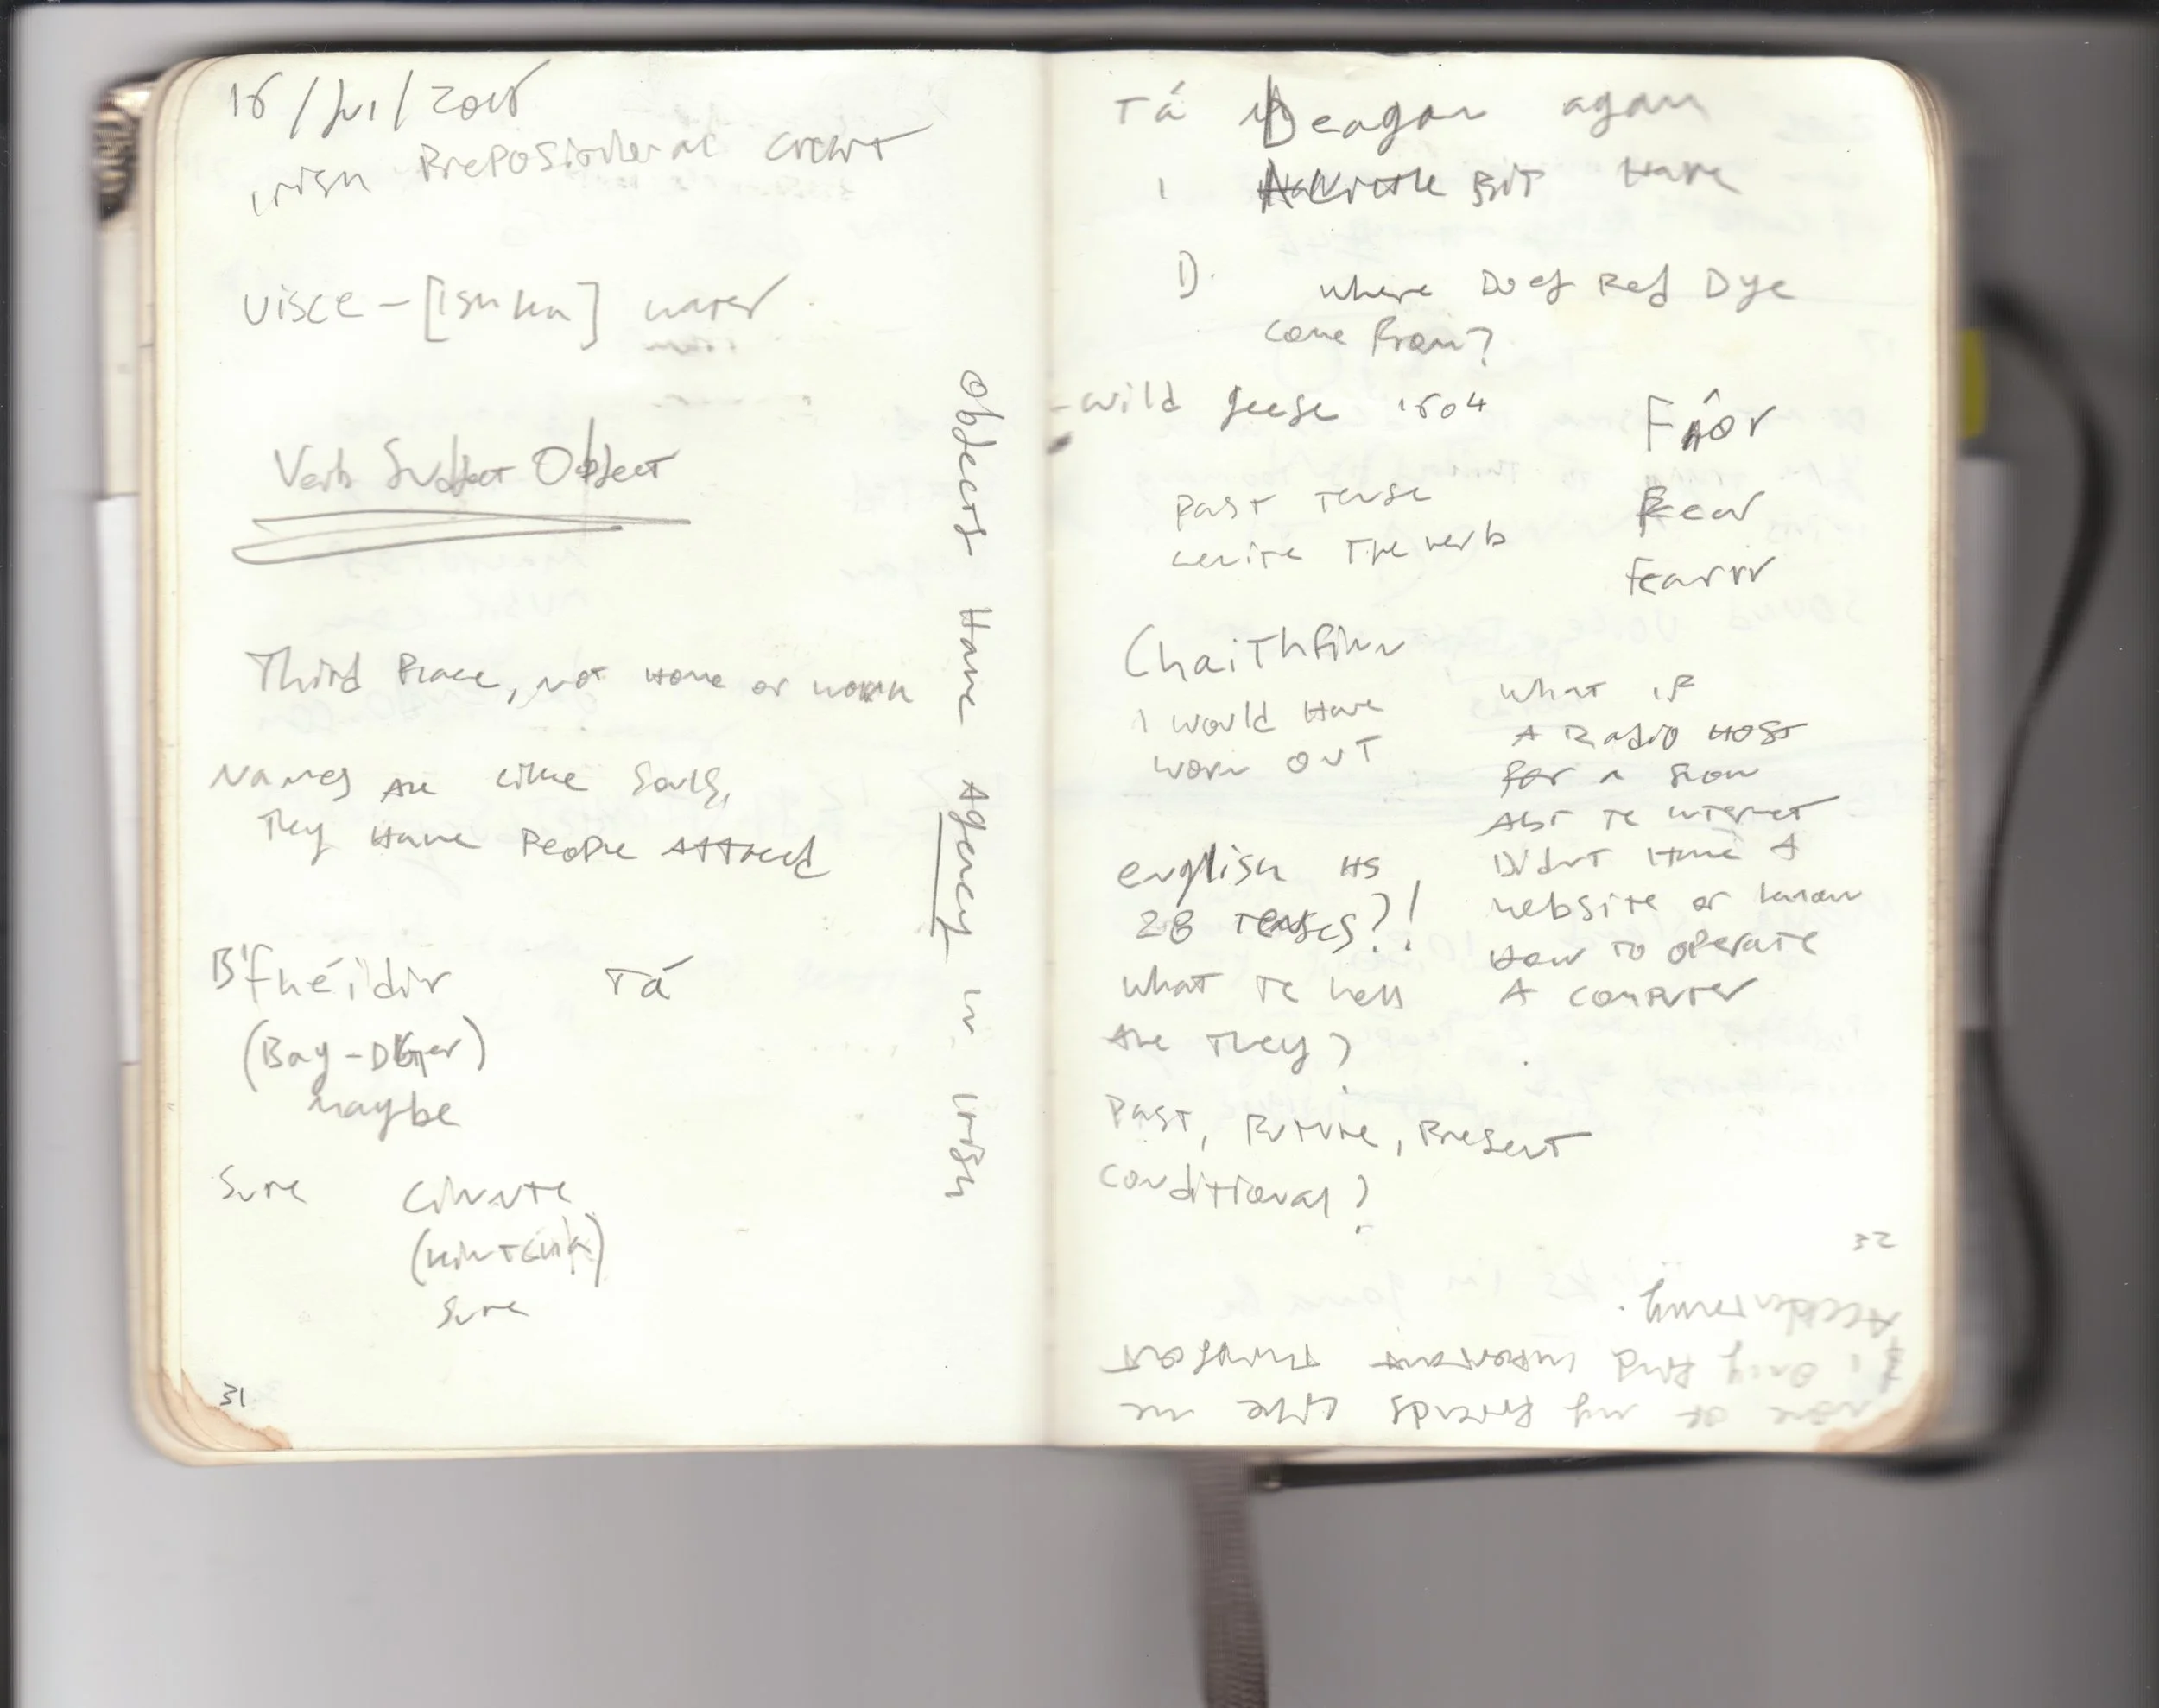 Irish Prepositional
UISCE - [ISHKA] water
Verb Subject Object
Third Place, not Home or work
Names Are Like Souls,
They Have People Attached
B'fhéidir Tá
maybe
Sure Cinnte
Sure
31
Objects Have Agency in Irish
Tá Beagan agam
I A Little Bit Have
D. where Does Red Dye
come From?
- wild geese
Past Tense
write The verb
Fear
Fearrr
Chaithfinn
I would Have
worn OUT
What if
A Radio HOST
for a show
Abt Te internet
Didn't Have A
website or know
How TO operate
A computer
english HS
28 Tenses?!
What Te hell
Are They?
Past, Future, Present
Conditional?
32
None of my friends like me
I only find important things out
Accidentally.